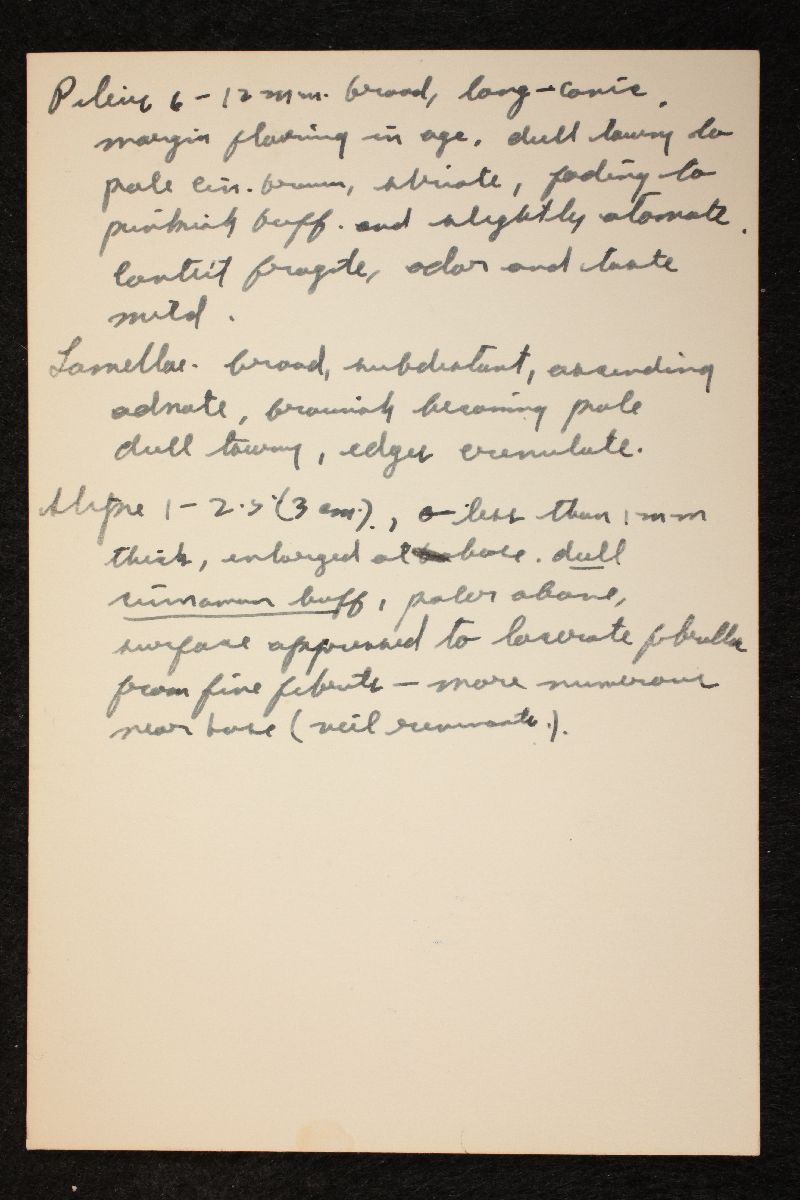 Pileus 6 – 12 mm. broad, long-conic,
margin flaring in age. dull tawny to
pale cin. brown, striate, fading to
pinkish buff. and slightly atomate.
Context fragile, odor and taste
mild.
Lamellae. broad, subdistant, ascending
adnate, brownish becoming pale
dull tawny, edges crenulate.
Stipe 1 – 2.5 (3 cm.), less than 1 mm
thick, enlarged at base. dull
cinnamon buff, paler above,
surface appressed to lacerate fibrillse
from fine fibrils — more numerous
near base (veil remnants.).